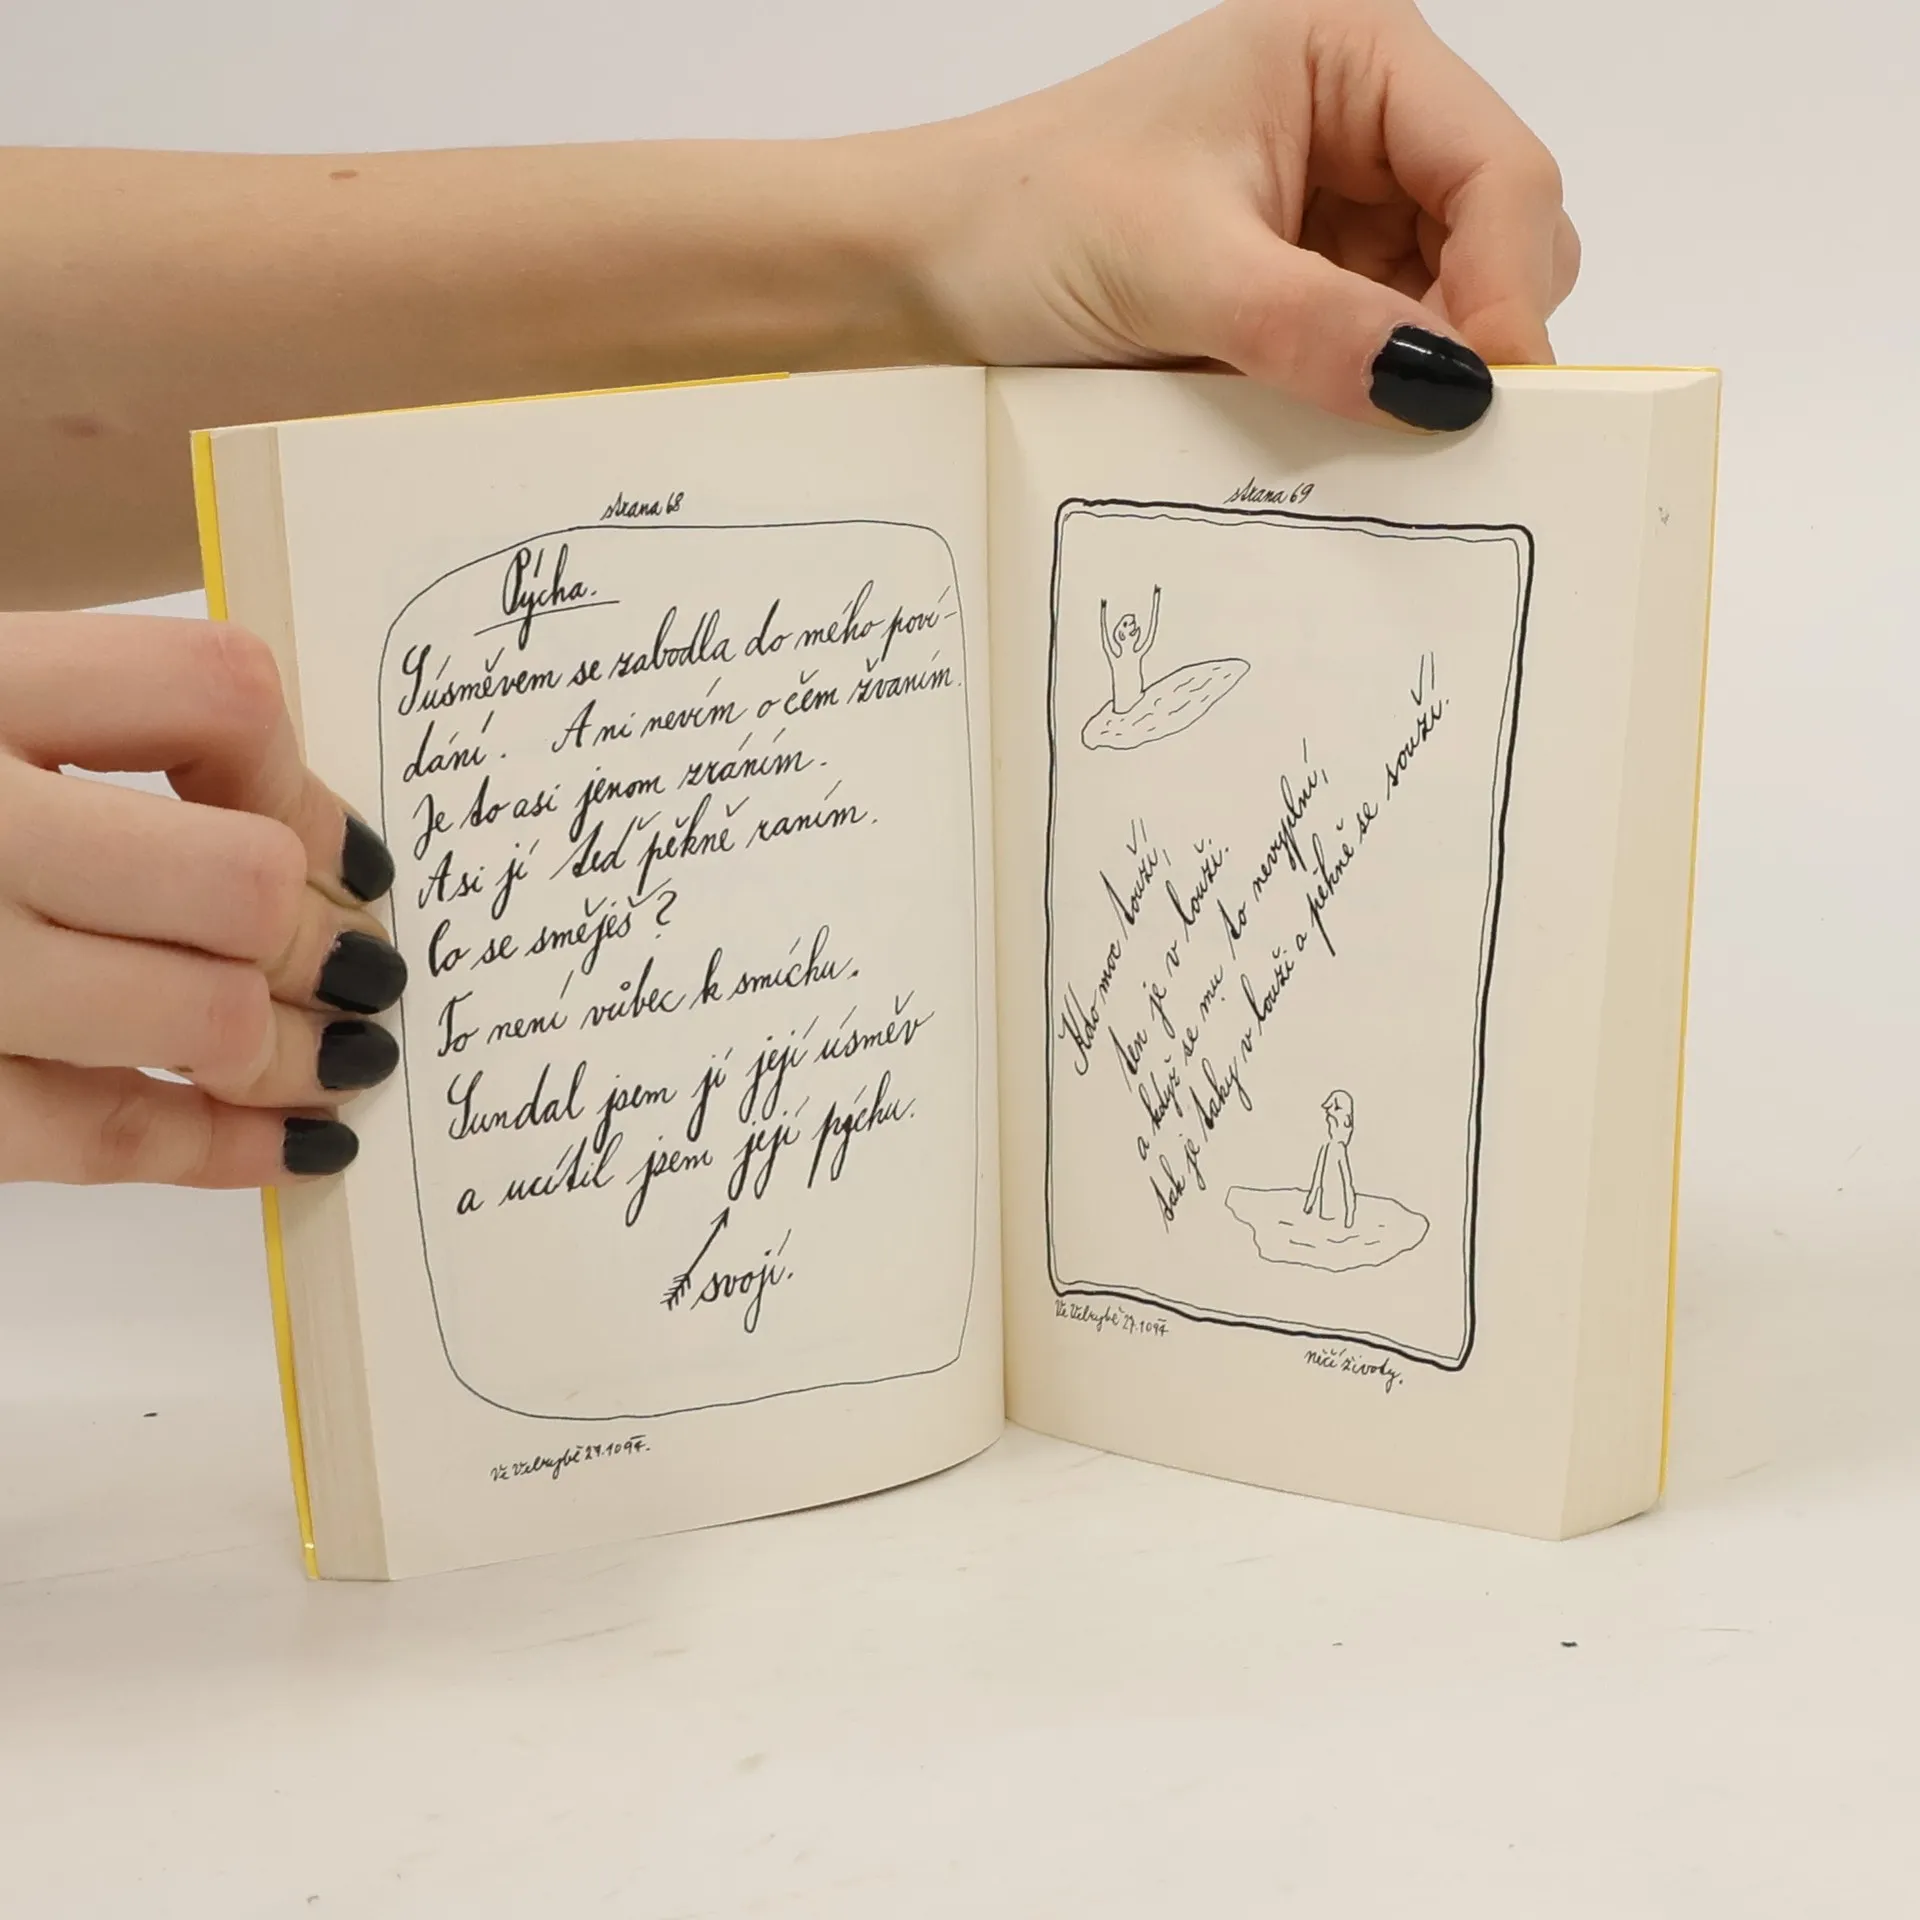 strana 68
Pýcha.
S úsměvem se zabodla do mého poví-
dání. Ani nevím o čem žvaním.
Je to asi jenom zráním.
Asi jí teď pěkně raním.
Co se směješ?
To není vůbec k smíchu.
Sundal jsem jí její úsměv
a ucítil jsem její pýchu.
svojí.
Ve Velrybě 27.10 94.
strana 69
Kdo moc touží,
ten je v louži.
a když se mu to nevyplní,
tak je taky v louži a pěkně se souží.
Ve Velrybě 27.10 94
něčí životy.